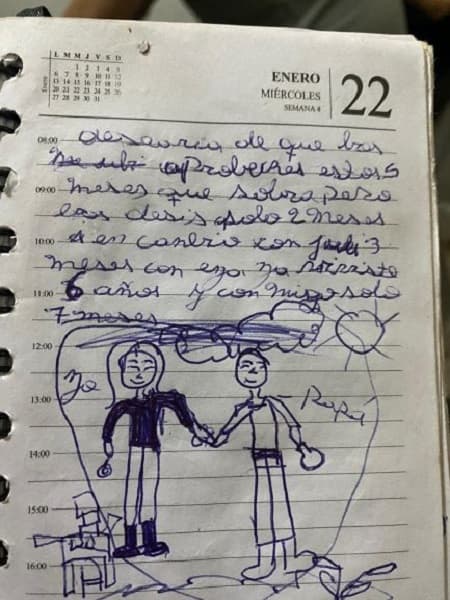 L M M J V S D
1 2 3 4 5
6 7 8 9 10 11 12
13 14 15 16 17 18 19
20 21 22 23 24 25 26
27 28 29 30 31
Enero
ENERO
MIÉRCOLES
SEMANA 4
22
08:00
de que
aprobeches estos 5
09:00
meses que sobra pero
solo 2 meses
10:00
en canbio con 3
meses con
11:00
6 años y con migo solo
7 meses
12:00
yo
13:00
Papá
14:00
15:00
16:00